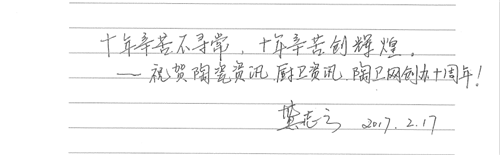 十年辛苦不寻常，十年辛苦创辉煌。
——祝贺陶瓷资讯、厨卫资讯、陶卫网创办十周年！
龚志云 2017.2.17